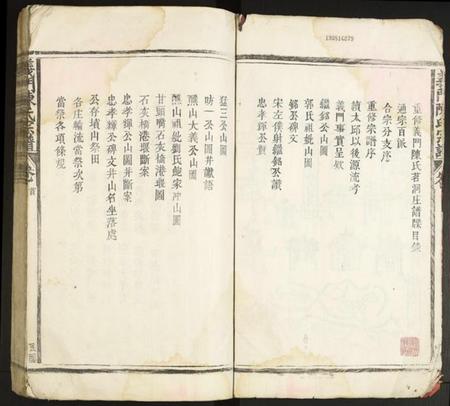 189514279
重修義門陳氏茗洞庄譜牒目錄
通宗百派
合宗分支序
重修宗譜序
績太邱以後源流考
義門事實呈欵
緼銘公山圖
郭氏祖妣山圖
宋左僕射緼銘公讚
銘公碑文
忠孝輝公
猛三公山圖
時一公山圖并讖語
熊山大義公山圖
熊山祖妣劉氏鮑家冲山圖
甘頭嘴石灰橋港堰圖
石灰橋港堰斷案
忠孝輝公山圖并斷案
忠孝輝公碑文并山名坐落處
公存墳山祭田
各庄輪流當祭次第
當祭各項條規
義門陳氏宗譜
卷
首